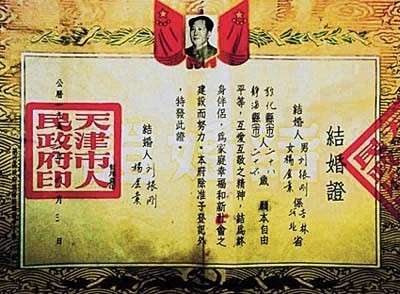 結婚證
結婚人 男 刘振刚 係 吉林 省
女 楊 素 河北
化縣(市)人二十八歲 願本自由
静海縣(市) 二十六
平等，互愛互敬之精神，結為終
身伴侶，為家庭幸福和新社會之
建設而努力。本府除准予登記外
，特發此證。
結婚人 刘振刚
楊 素
天津市人
民政府印
公曆 月 三 日